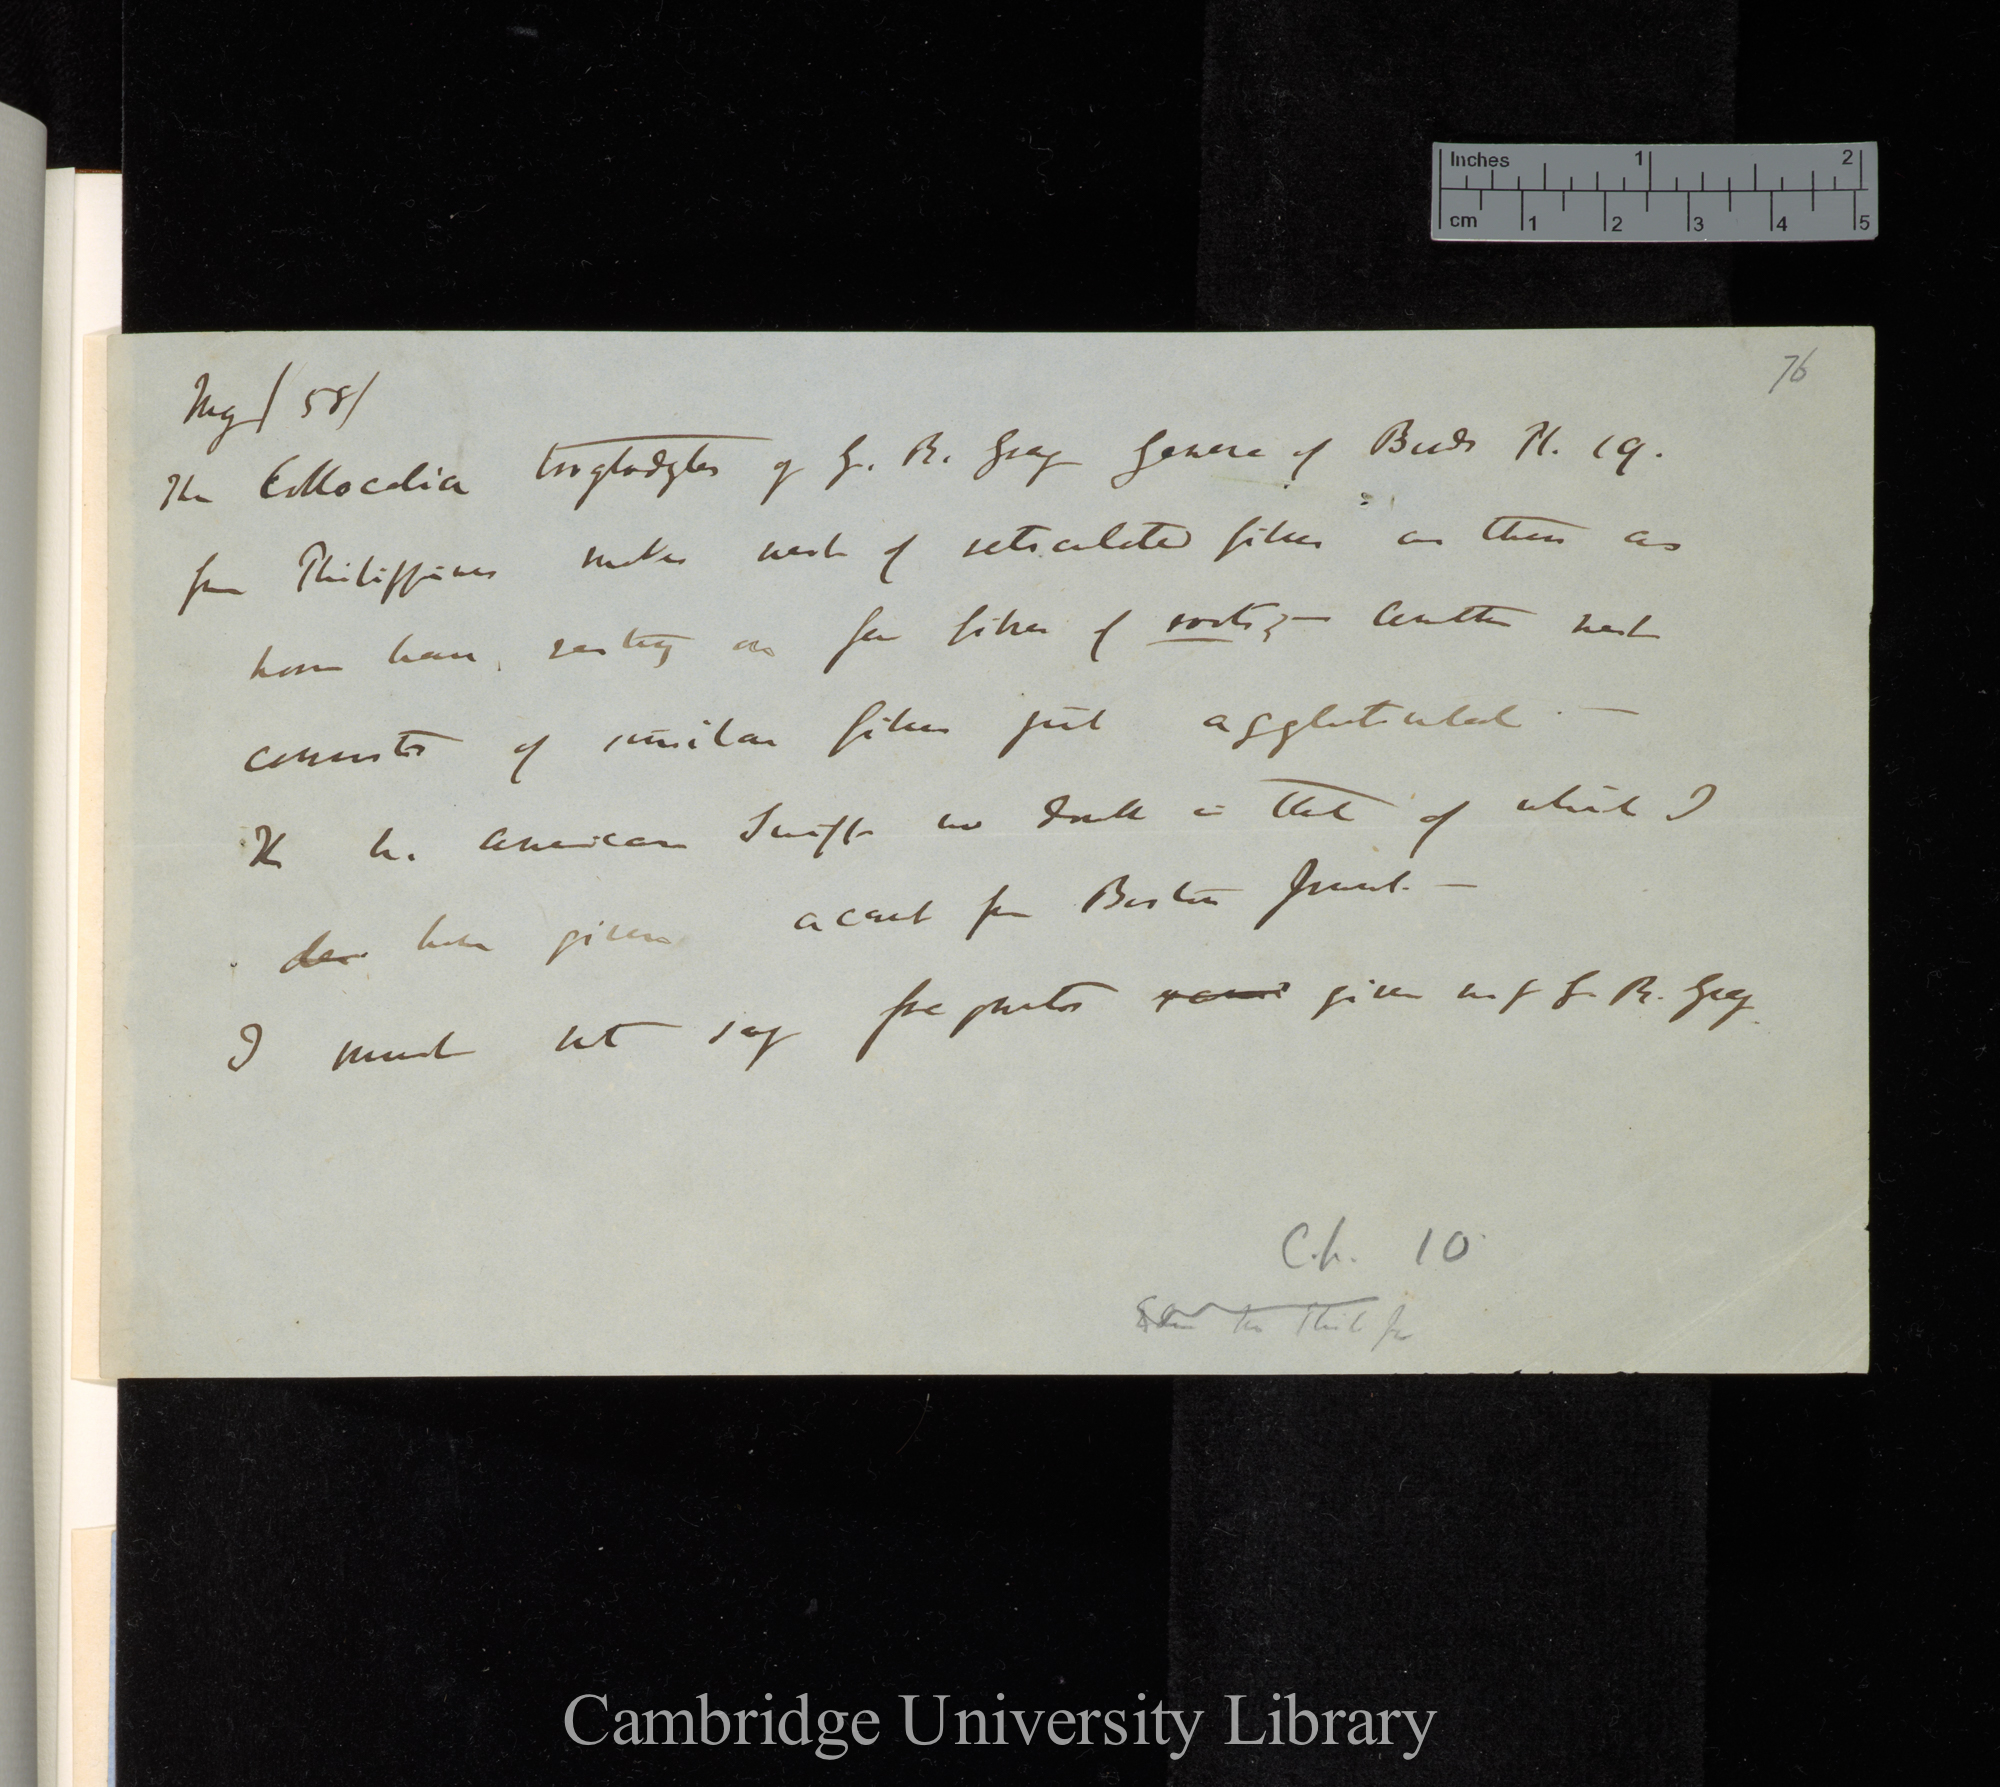 76
May / 58/
The Collocalia troglodytes of G. R. Gray Genera of Birds Pl. 19.
from Philippines makes nest of reticulated fibres as thin as
horse hair, resting on few fibres of roots;— Another nest
consists of similar fibres just agglutinated. —
The N. American Swift no doubt is that of which I
have given account from Boston Journal. —
I must not say given me by G. R. Gray
Ch. 10
Inches 1 2
cm 1 2 3 4 5
Cambridge University Library